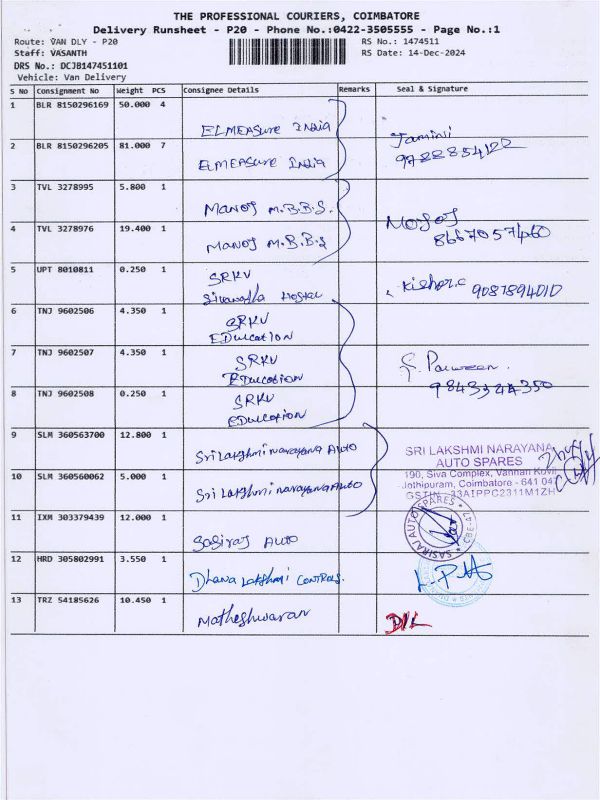 THE PROFESSIONAL COURIERS, COIMBATORE
Delivery Runsheet - P20 - Phone No.:0422-3505555 - Page No.:1
Route: VAN DLY - P20
RS No.: 1474511
Staff: VASANTH
RS Date: 14-Dec-2024
DRS No.: DCJB147451101
Vehicle: Van Delivery
S No Consignment No Weight PCS Consignee Details Remarks Seal & Signature
1 BLR 8150296169 50.000 4
ELMEASURE INDIA
Jamini
2 BLR 8150296205 81.000 7
ELMEASURE INDIA
3 TVL 3278995 5.800 1
MANOJ M.B.B.S.
4 TVL 3278976 19.400 1
MANOJ M.B.B.S
8667057460
5 UPT 8010811 0.250 1
SRKV
Hostel
Kishore 9087894010
6 TNJ 9602506 4.350 1
SRKV
EDucation
7 TNJ 9602507 4.350 1
SRKV
EDucation
8 TNJ 9602508 0.250 1
SRKV
EDucation
9 SLM 360563700 12.800 1
Sri Lakshmi narayana Auto
SRI LAKSHMI NARAYANA
AUTO SPARES
190, Siva Complex, Vannan Kovil
Jothipuram, Coimbatore - 641 047
GSTIN : 33AIPPC2311M1ZH
10 SLM 360560062 5.000 1
Sri Lakshmi narayana Auto
11 IXM 303379439 12.000 1
Sasiraj Auto
SASIRAJ AUTO SPARES
CBE-47
12 HRD 305802991 3.550 1
Dhana Lakshmi CONTROLS.
13 TRZ 54185626 10.450 1
Matheshwaran
D/L